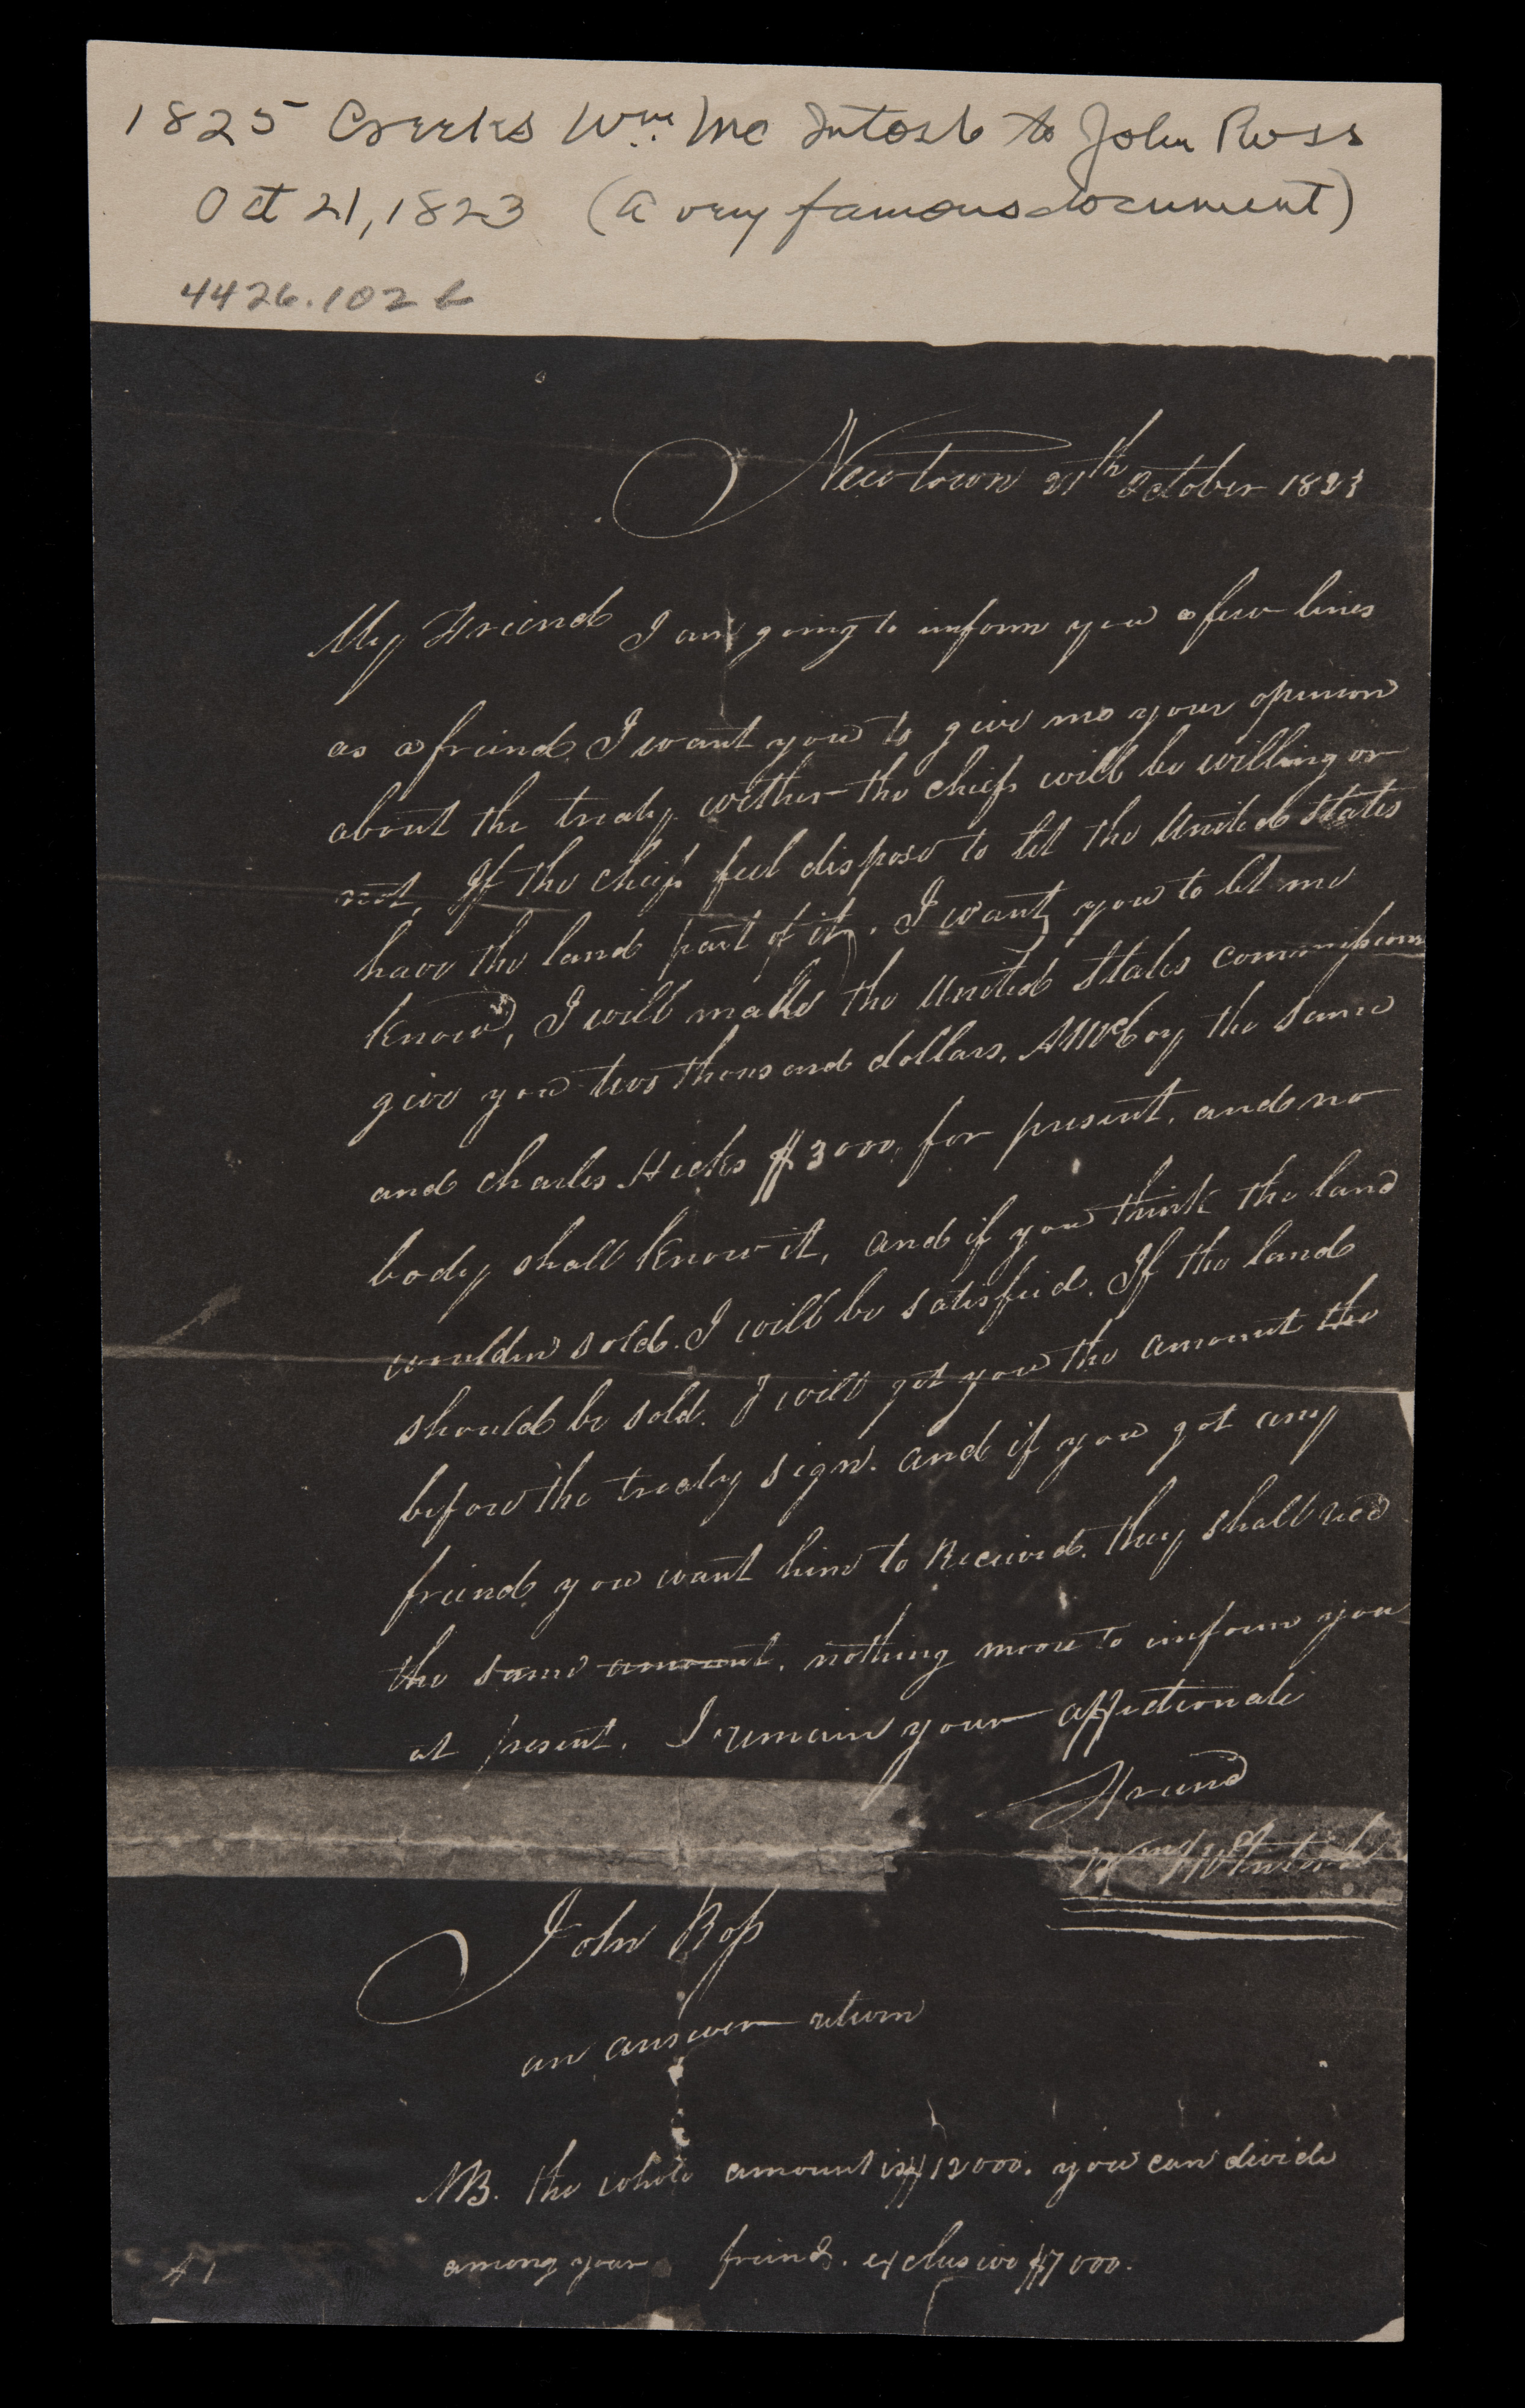 1825 Creeks Wm. McIntosh to John Ross
Oct 21, 1823 (a very famous document)
4426.102 b
Newtown 21th October 1823
My Friend I am going to inform you a few lines
as a friend. I want you to give me your opinion
about the treaty wether the chiefs will be willing or
not, If the chiefs feel dispose to let the United States
have the land part of it, I want you to let me
know, I will make the United States commissioners
give you two thousand dollars, A McCoy the same
and Charles Hicks $3000, for present, and no
body shall know it, and if you think the land
wouldn sold. I will be satisfied. If the land
should be sold. I will get you the amount the
before the treaty sign. and if you got any
friend you want him to Received. they shall recd
the same amount. nothing more to inform you
at present. I remain your affectionate
Friend
Wm McIntosh
John Ross
an answer return
NB. the whole amount is $12000. you can divide
among your friends. exclusive $7000.
A 1